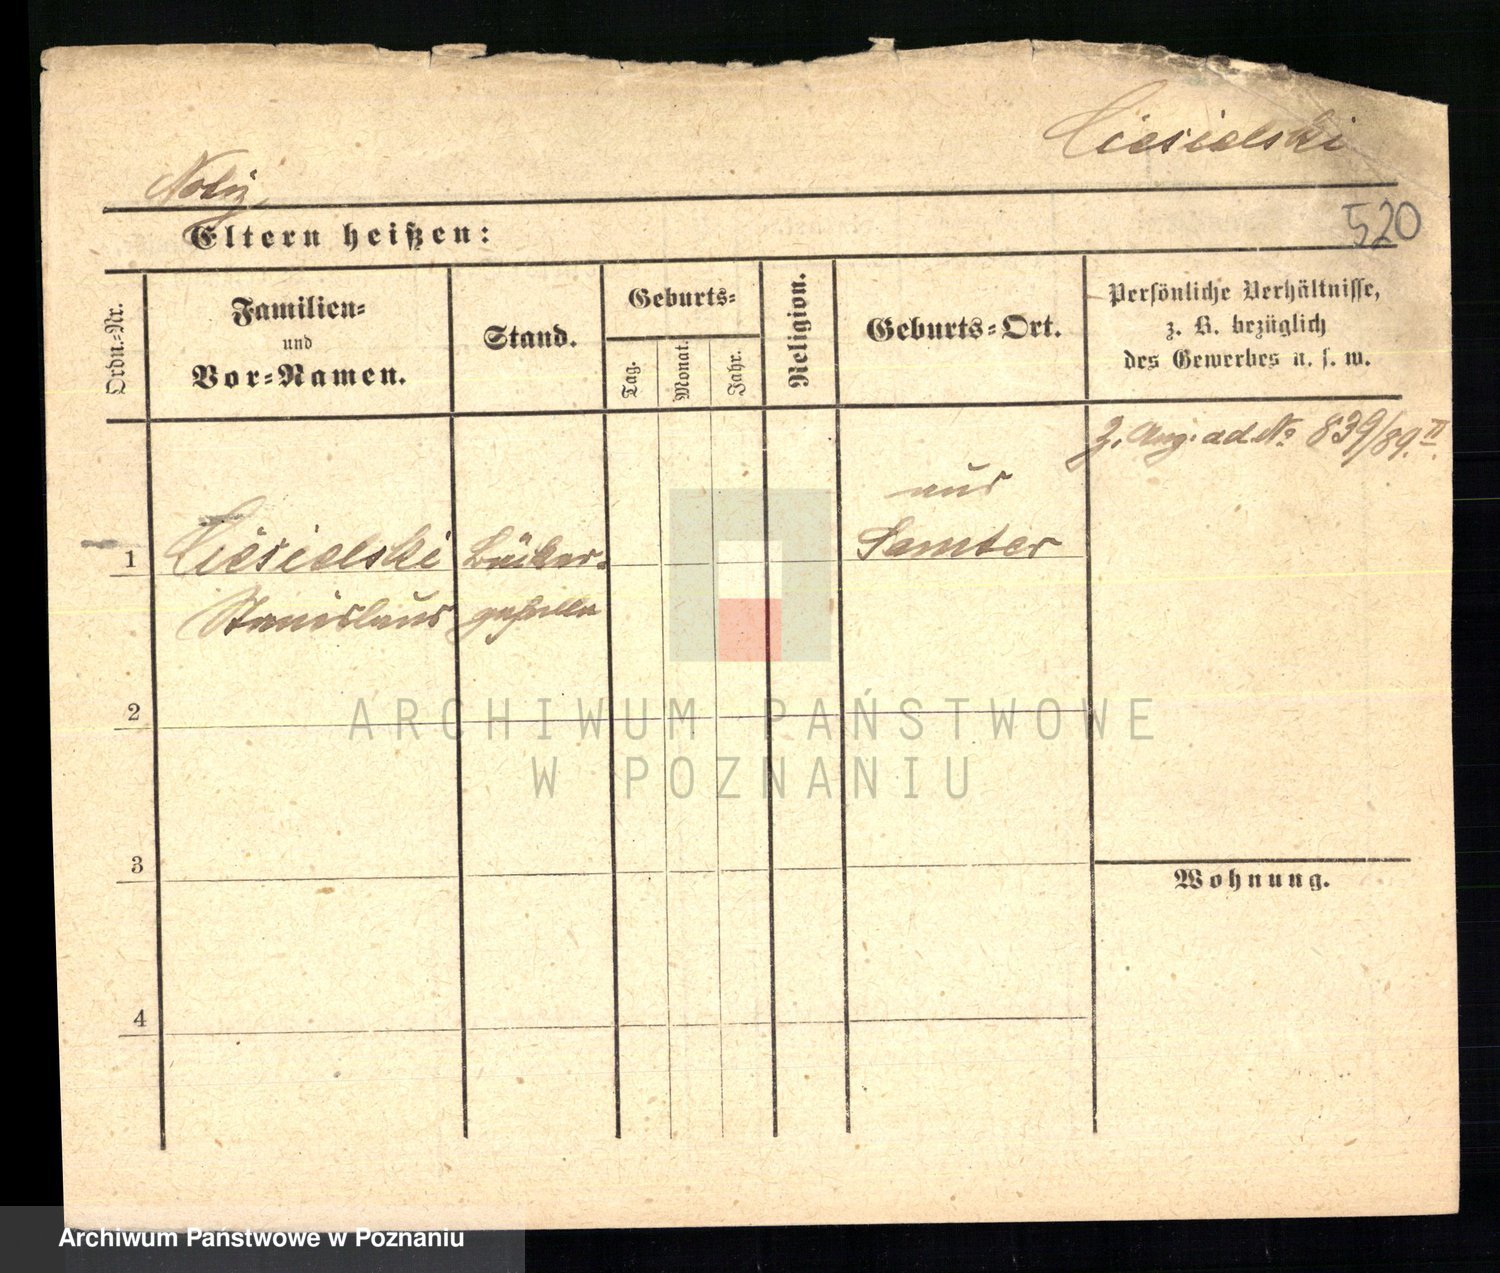 Ciesielski
Notiz
520
Eltern heißen:
Ordn.-Nr.
Familien-
und
Vor-Namen.
Stand.
Geburts-
Tag.
Monat.
Jahr.
Religion.
Geburts-Ort.
Persönliche Verhältnisse,
z. B. bezüglich
des Gewerbes u. s. w.
z. Ang. ad. No 839/89. II.
1
Ciesielski
Stanislaus
Bäcker-
geselle
aus
Samter
2
3
4
Wohnung.
ARCHIWUM PAŃSTWOWE
W POZNANIU
Archiwum Państwowe w Poznaniu